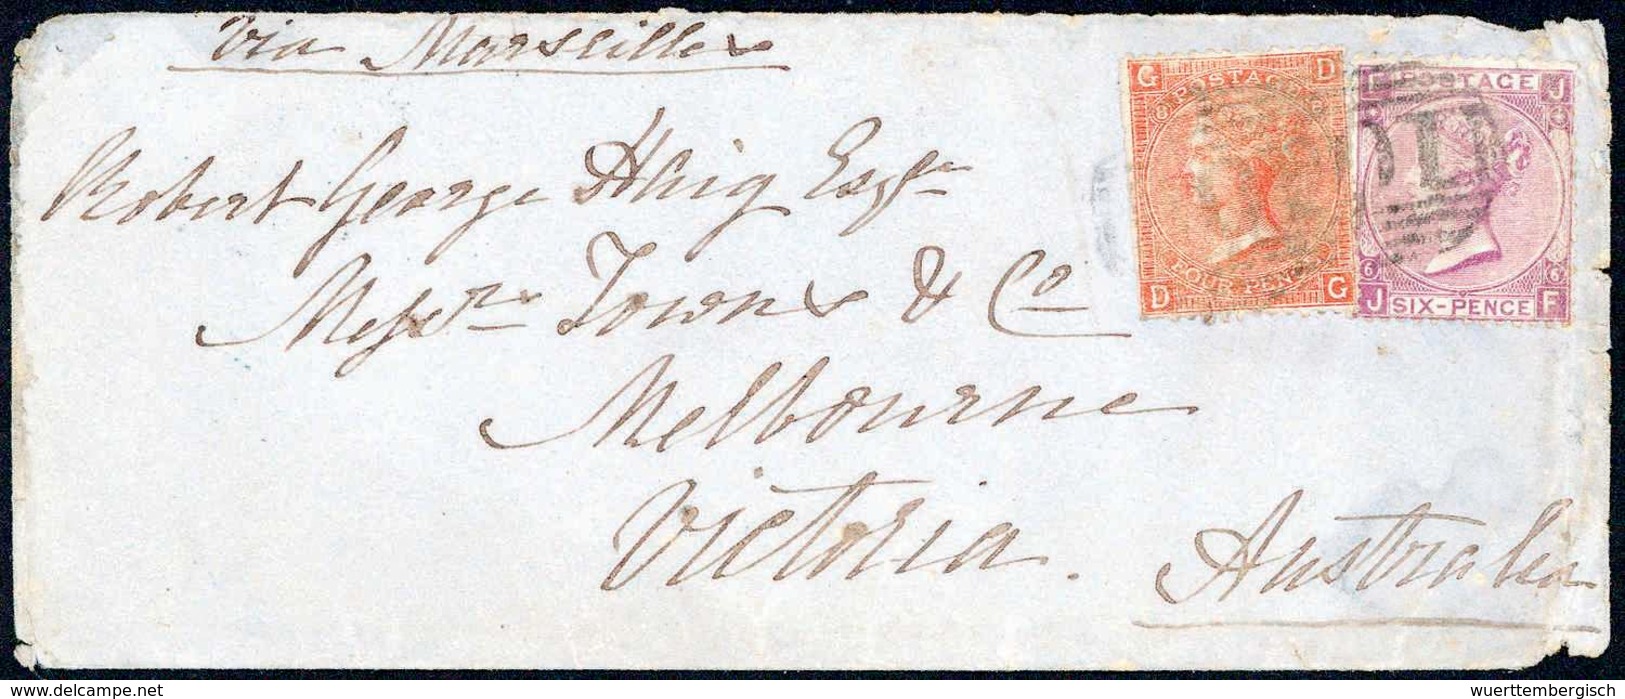 via Marseilles
Robert George Haig Esqre
Messrs Towns & Co
Melbourne
Victoria.
Australia
G D
POSTAGE
FOUR PENCE
D G
F J
POSTAGE
6 6
J SIX-PENCE F
www.delcampe.net
wuerttembergisch